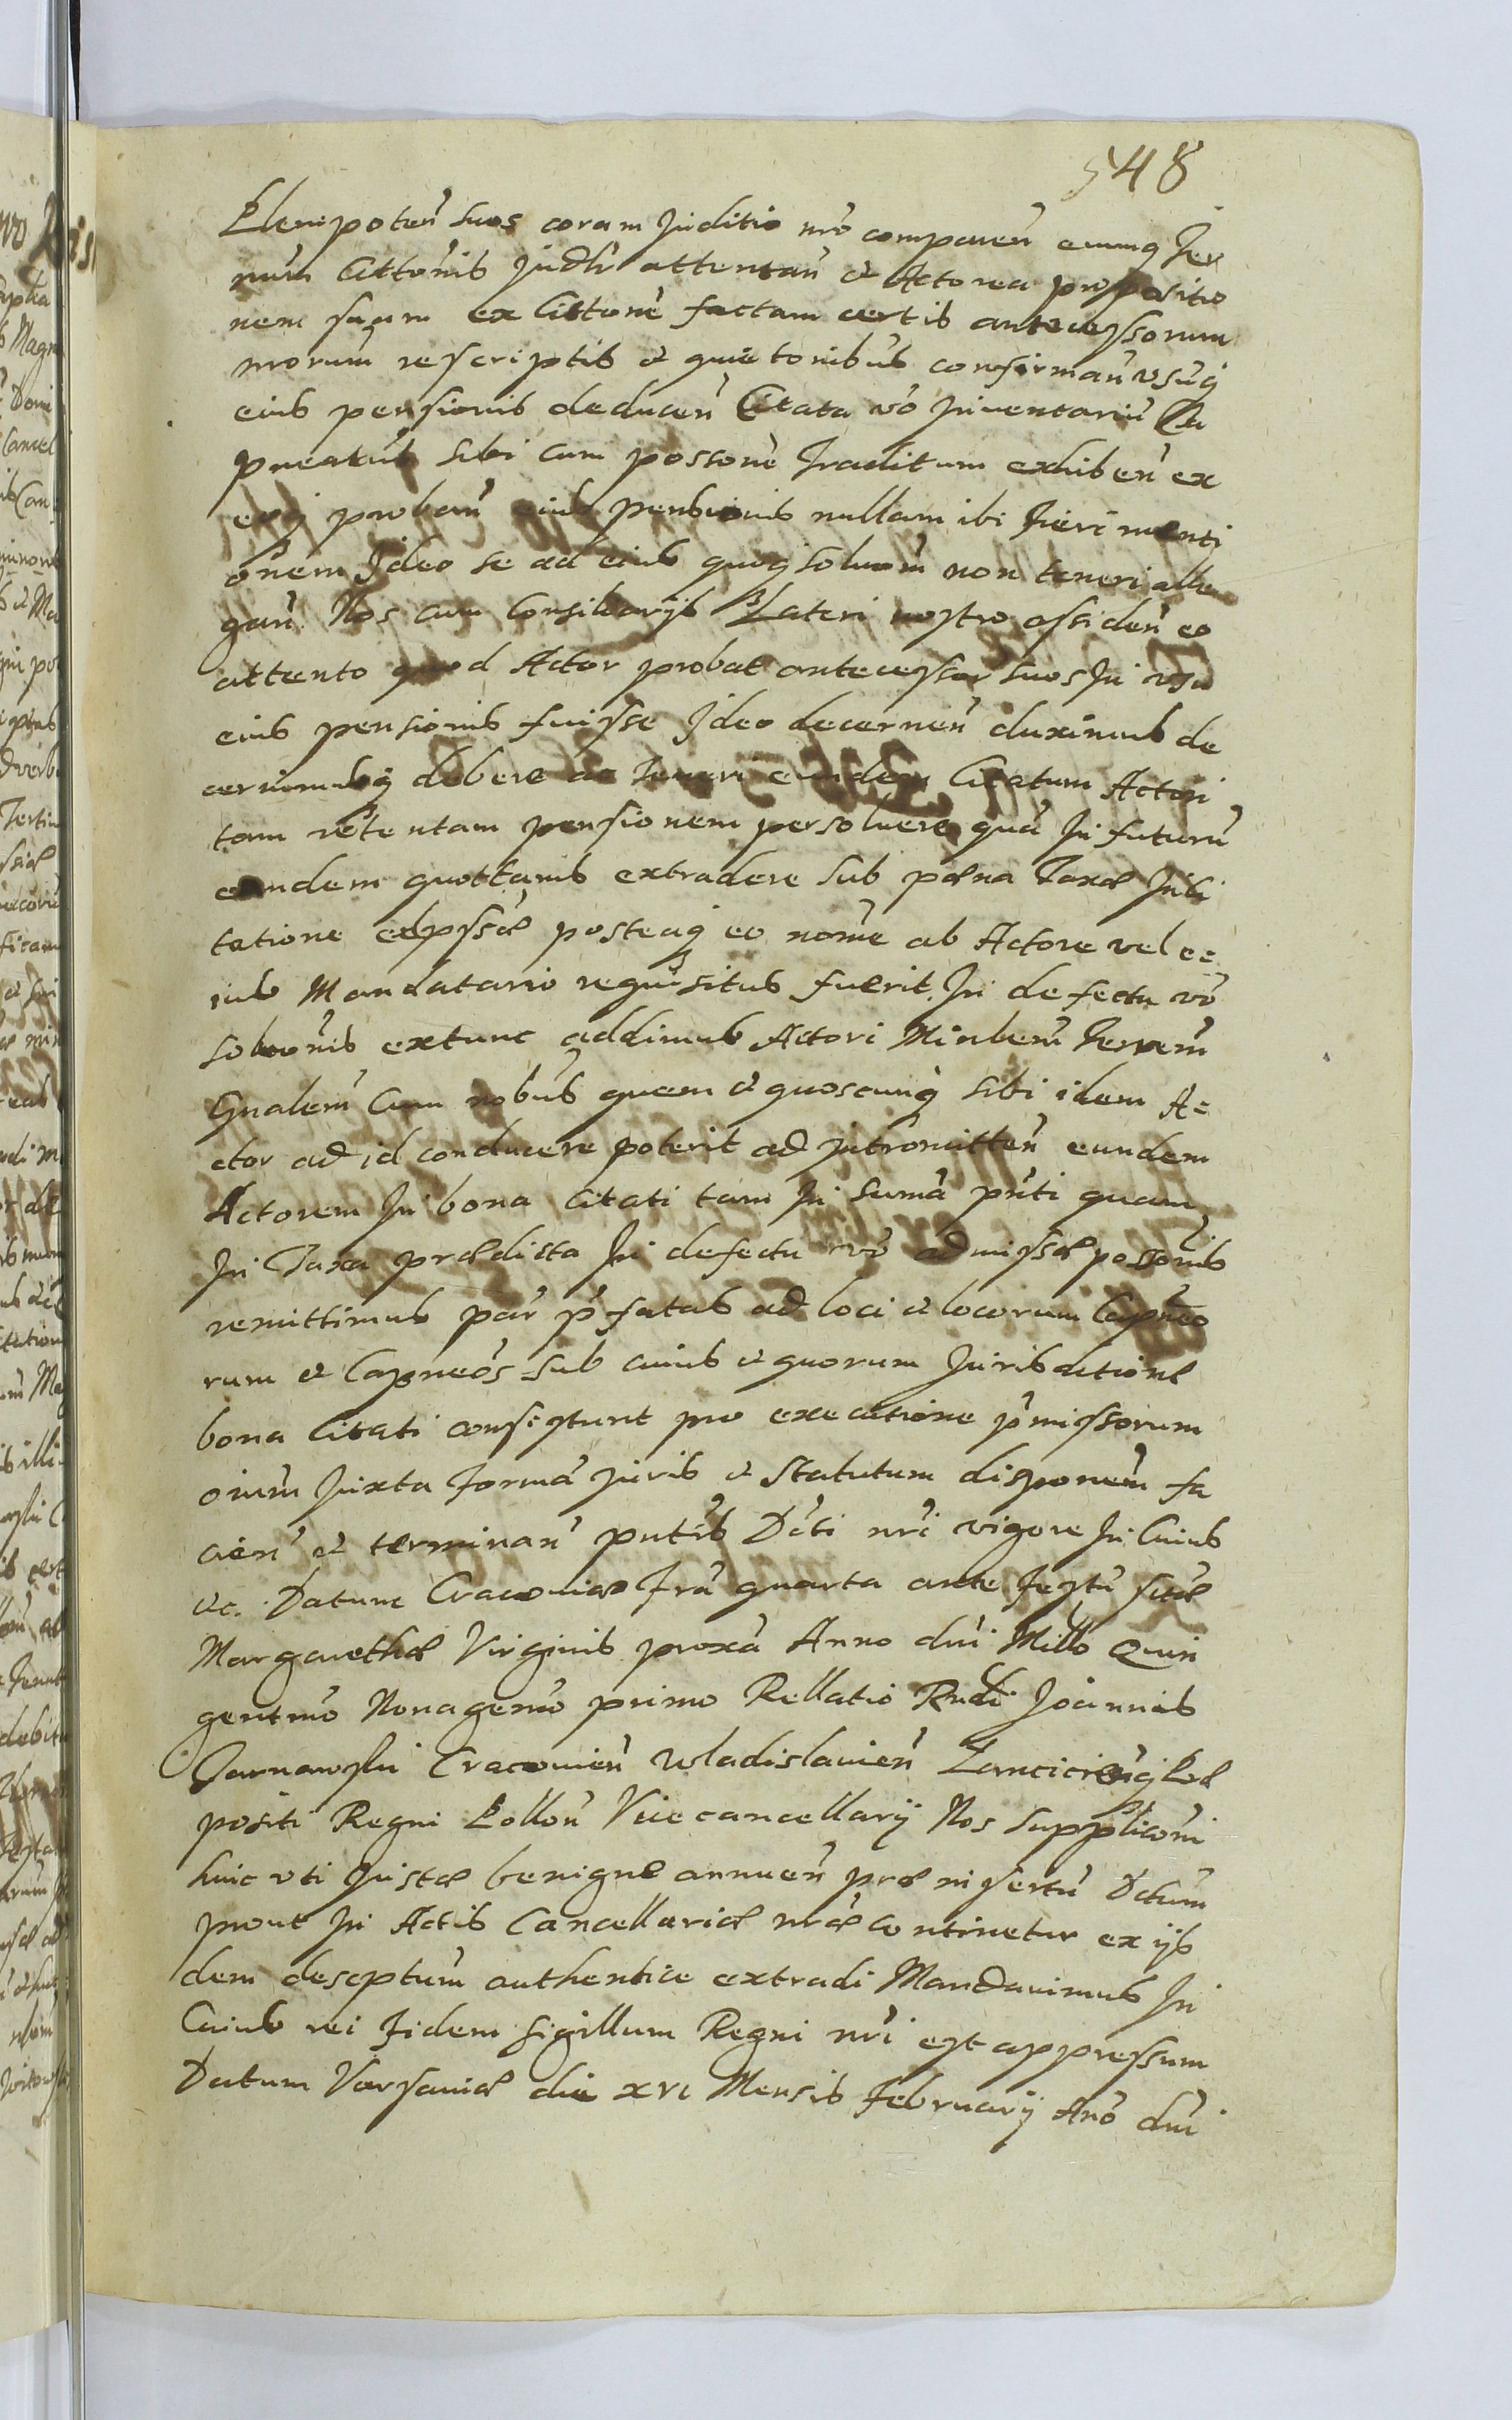 548
Plenipoten̄ suos coram Juditio nr̄o comparen̄ eiumq̧ Ter
num Citton̄is Judr̄ attentan̄ et Actorea propositio
nem suam ex Cittone factam certis antecessorum
morum rescriptis et quietonibus confirman̄ usuq̧
eius pensionis deducen̄ Citata vō Inventariū Ca
preatus sibi cum posson̄e Traditum exhiben̄ ex
eoq̧ proban̄ eius pensionis nullam ibi Fieri menti
onem Ideo se ad eius quoq̧ solu͠om non teneri alle
gan̄. Nos cum Consiliarijs Lateri nostro assiden̄ eo
attento quod Actor probat antecessor̄ suos In usu
eius pensionis fuisse Ideo decernen̄ duximus de
cernimusq̧ debere ac Teneri eundem Citatum Actori
tam retentam pensionem persoluere quā In futurū
eamdem quottanis extradere sub pæna Taxæ In Ci
tatione expssæ posteaq̧ eo nom̄e ab Actore vel e
ius Mandatario requisitus fuerit. In defectu vō
soluon̄is extunc addimus Actori Min̄lem̄ Terrem̄
Gn̄alem̄ Cum nob̄us quem et quoscunq̧ sibi idem A
ctor ad id conducere poterit ad Intromitten̄ eundem
Actorem In bona Citati tam In sum̄a pn̄ti quam
In Taxa prædicta In defectu vō admissæ posson̄is
remittimus par̄ p̄fatas ad loci et locorum Capn̄eo
rum et Capneos sub cuius et quorum Jurisdictione
bona Citati consistunt pro executione p̄missorum
oīum Juxta formā Juris et Statutum disponen̄ fa
cien̄ et terminan̄ pn̄tis Dc̄ti nr̄i vigore In Cuius
etc. Datum Cracoviæ Fr̄ā quarta ante Festū sc̄tæ
Margarethæ Virginis proxā Anno dn̄i Mill̄o Quin
gentmo Nonagemo primo Rellatio Rndi Joannis
Tarnawski Cracovien̄ Wladislavien̄ Lancicien̄q̧ Præ
positi Regni Pollon̄ Vicecancellarij Nos Supplicon̄i
huic uti Justæ benigne annuen̄ præinsertū Dc̄tum
prout In Actis Cancellariæ nr̄æ continetur ex ijs
dem descptum authentice extradi Mandauimus In
Cuius rei Fidem Sigillum Regni nr̄i est appressum
Datum Varsaviæ die XVI Mensis Februarij An̄o dn̄i